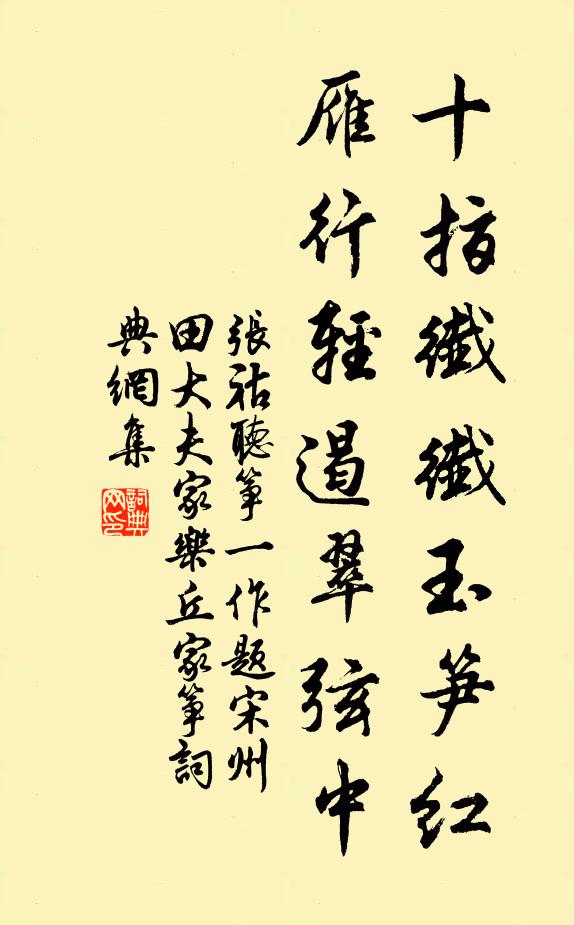 十指纖纖玉筍紅
雁行輕遏翠弦中
張祜聽箏一作題宋州
田大夫家樂丘家箏詞
典網集
詞典
网印